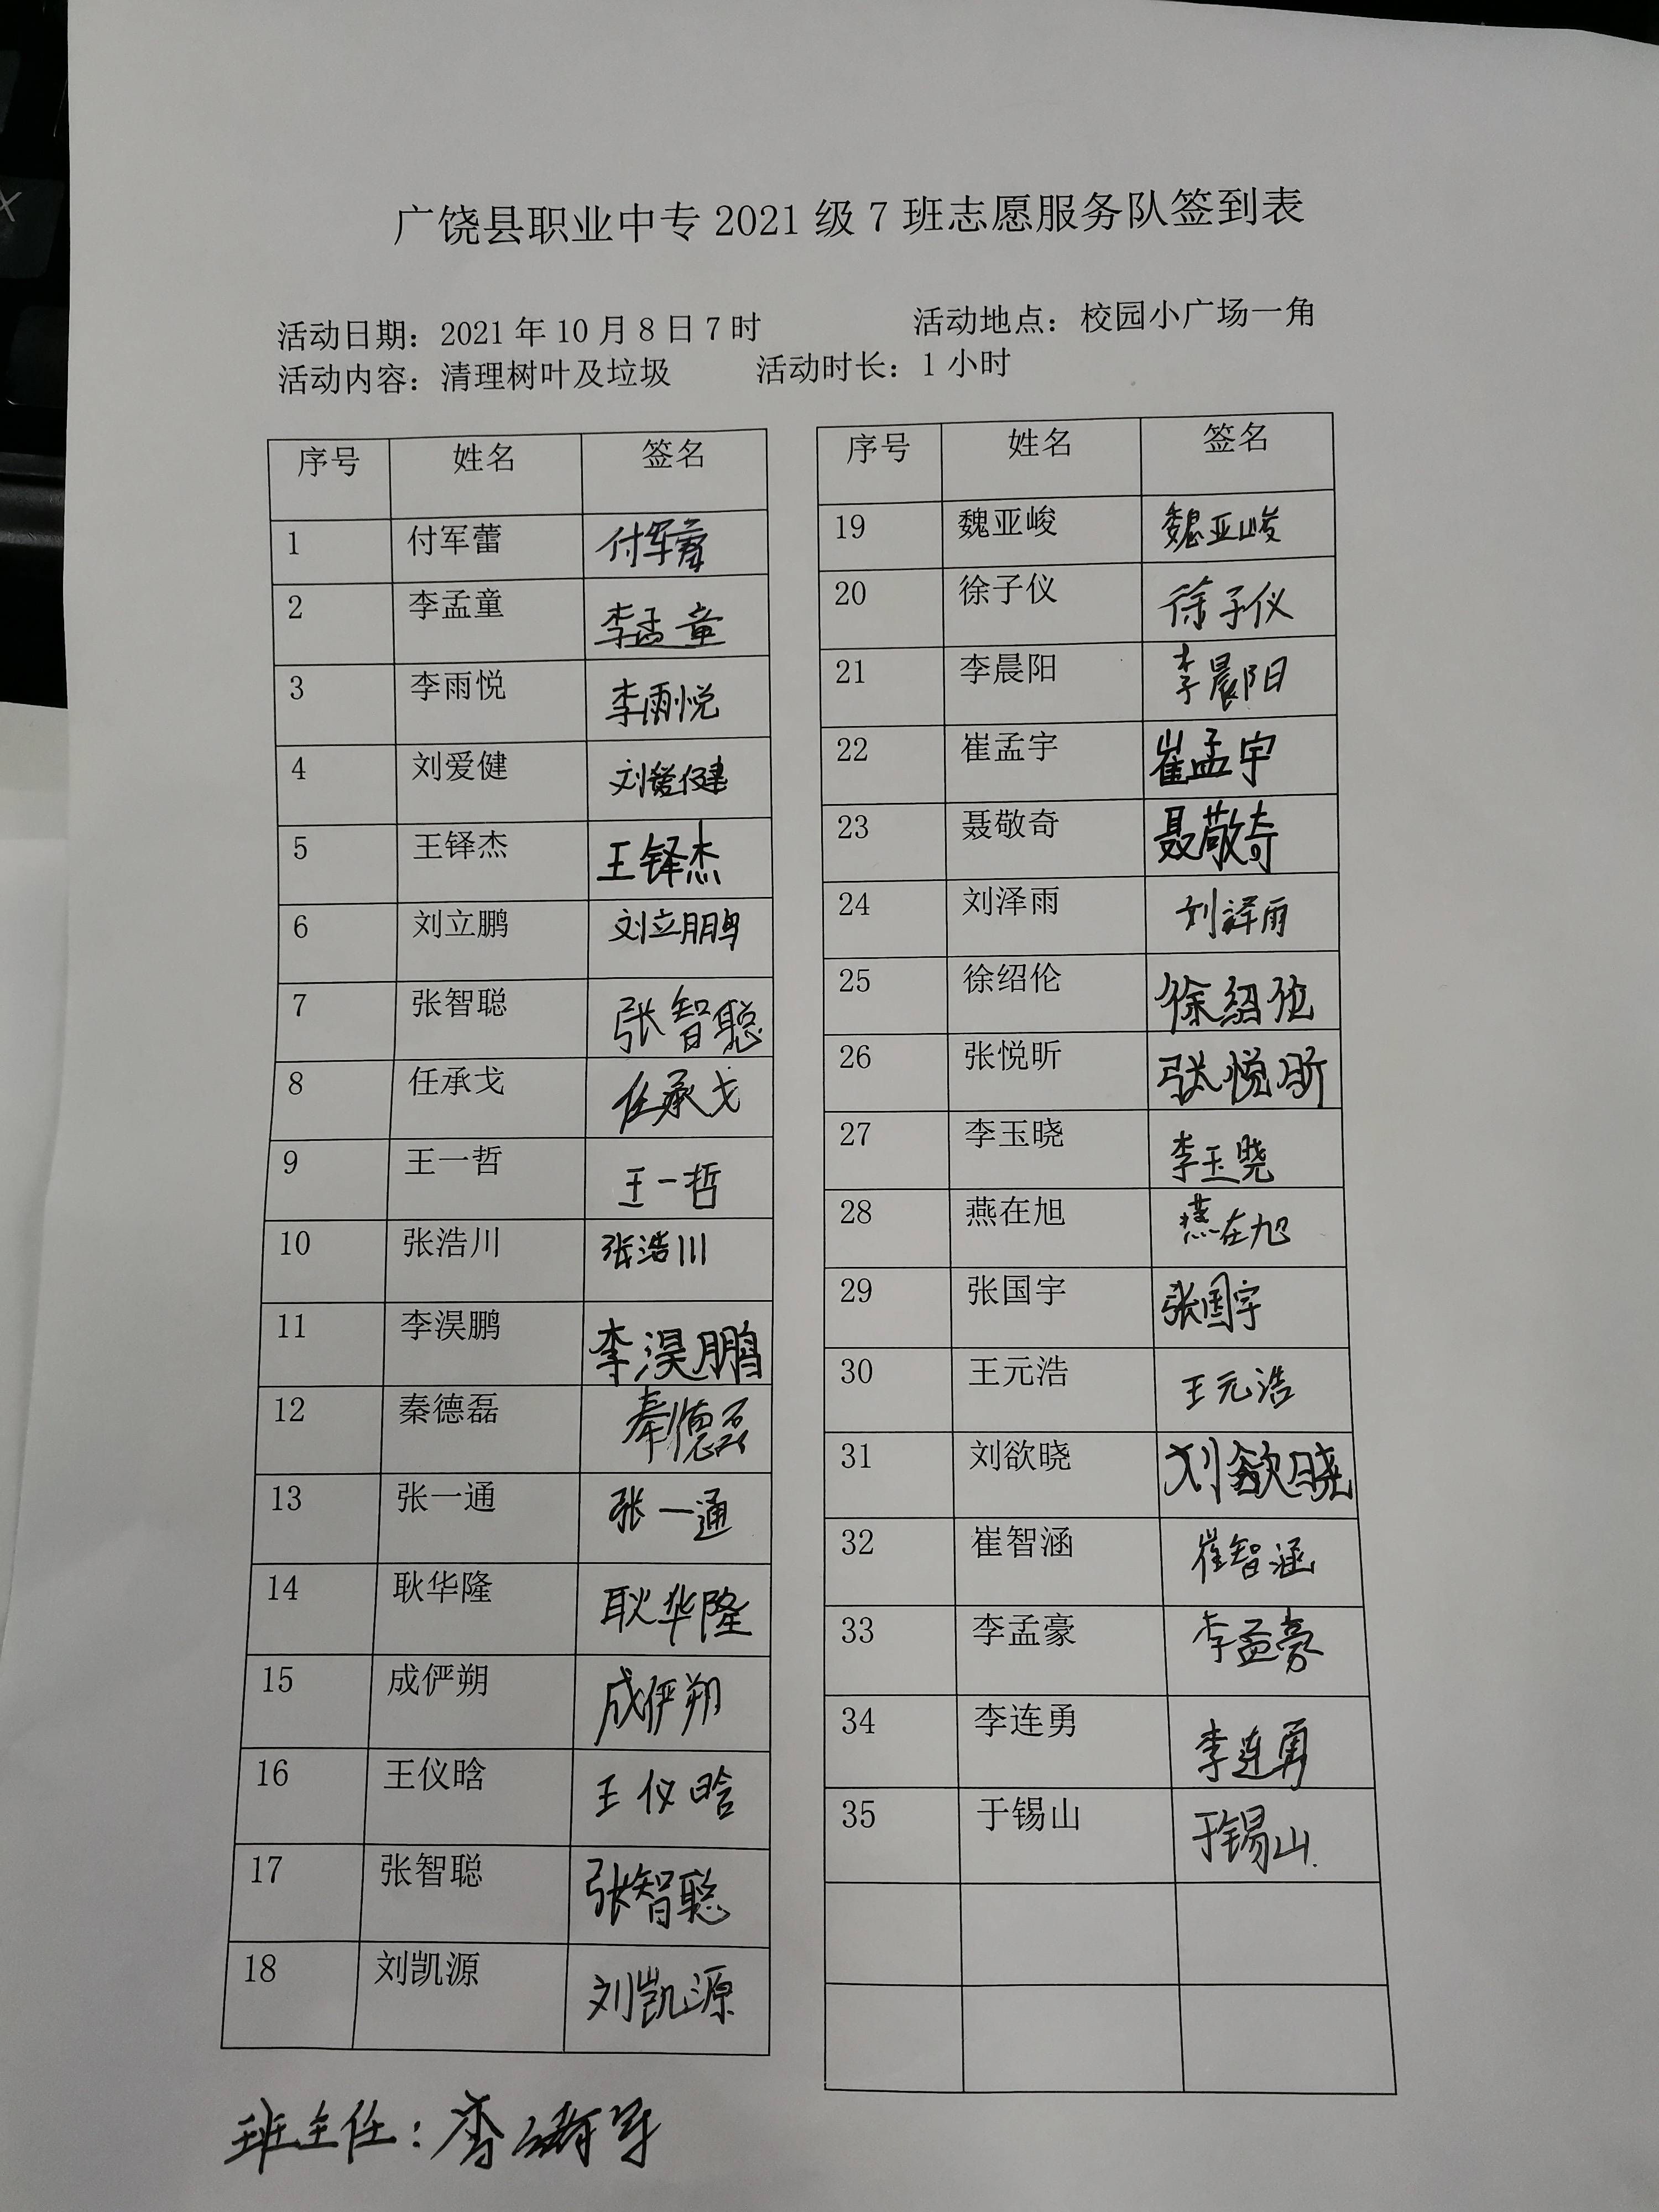 广饶县职业中专 2021 级 7 班志愿服务队签到表
活动日期：2021 年 10 月 8 日 7 时 活动地点：校园小广场一角
活动内容：清理树叶及垃圾 活动时长：1 小时
序号 姓名 签名
1 付军蕾 付军蕾
2 李孟童 李孟童
3 李雨悦 李雨悦
4 刘爱健 刘爱健
5 王铎杰 王铎杰
6 刘立鹏 刘立鹏
7 张智聪 张智聪
8 任承戈 任承戈
9 王一哲 王一哲
10 张浩川 张浩川
11 李淏鹏 李淏鹏
12 秦德磊 秦德磊
13 张一通 张一通
14 耿华隆 耿华隆
15 成俨朔 成俨朔
16 王仪晗 王仪晗
17 张智聪 张智聪
18 刘凯源 刘凯源
序号 姓名 签名
19 魏亚峻 魏亚峻
20 徐子仪 徐子仪
21 李晨阳 李晨阳
22 崔孟宇 崔孟宇
23 聂敬奇 聂敬奇
24 刘泽雨 刘泽雨
25 徐绍伦 徐绍伦
26 张悦昕 张悦昕
27 李玉晓 李玉晓
28 燕在旭 燕在旭
29 张国宇 张国宇
30 王元浩 王元浩
31 刘欲晓 刘欲晓
32 崔智涵 崔智涵
33 李孟豪 李孟豪
34 李连勇 李连勇
35 于锡山 于锡山
班主任：